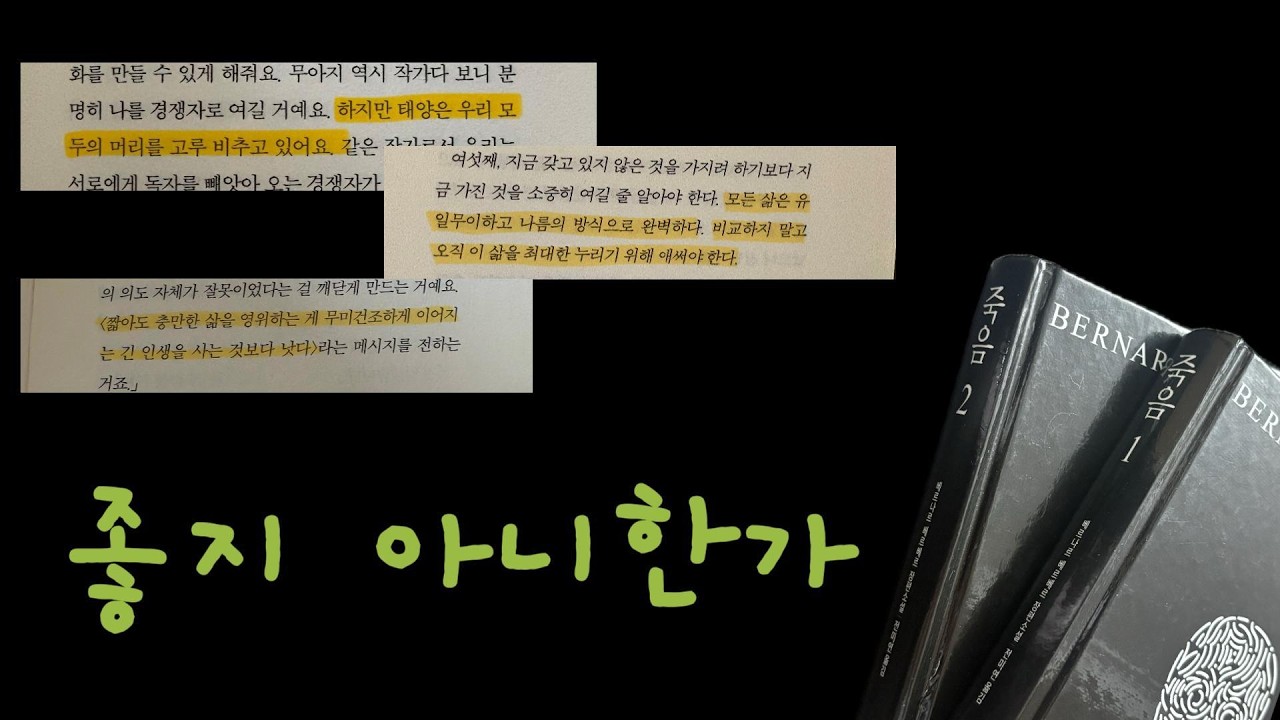 화를 만들 수 있게 해줘요. 무아지 역시 작가다 보니 분
명히 나를 경쟁자로 여길 거예요. 하지만 태양은 우리 모
두의 머리를 고루 비추고 있어요. 같은 작가로서 우리는
서로에게 독자를 빼앗아 오는 경쟁자가
여섯째, 지금 갖고 있지 않은 것을 가지려 하기보다 지
금 가진 것을 소중히 여길 줄 알아야 한다. 모든 삶은 유
일무이하고 나름의 방식으로 완벽하다. 비교하지 말고
오직 이 삶을 최대한 누리기 위해 애써야 한다.
의 의도 자체가 잘못이었다는 걸 깨닫게 만드는 거예요.
〈짧아도 충만한 삶을 영위하는 게 무미건조하게 이어지
는 긴 인생을 사는 것보다 낫다〉라는 메시지를 전하는
거죠.」
좋지 아니한가
죽음 2
베르나르 베르베르 장편소설 전미연 옮김
BERNAR
죽음 1
베르나르 베르베르 장편소설 전미연 옮김
BER